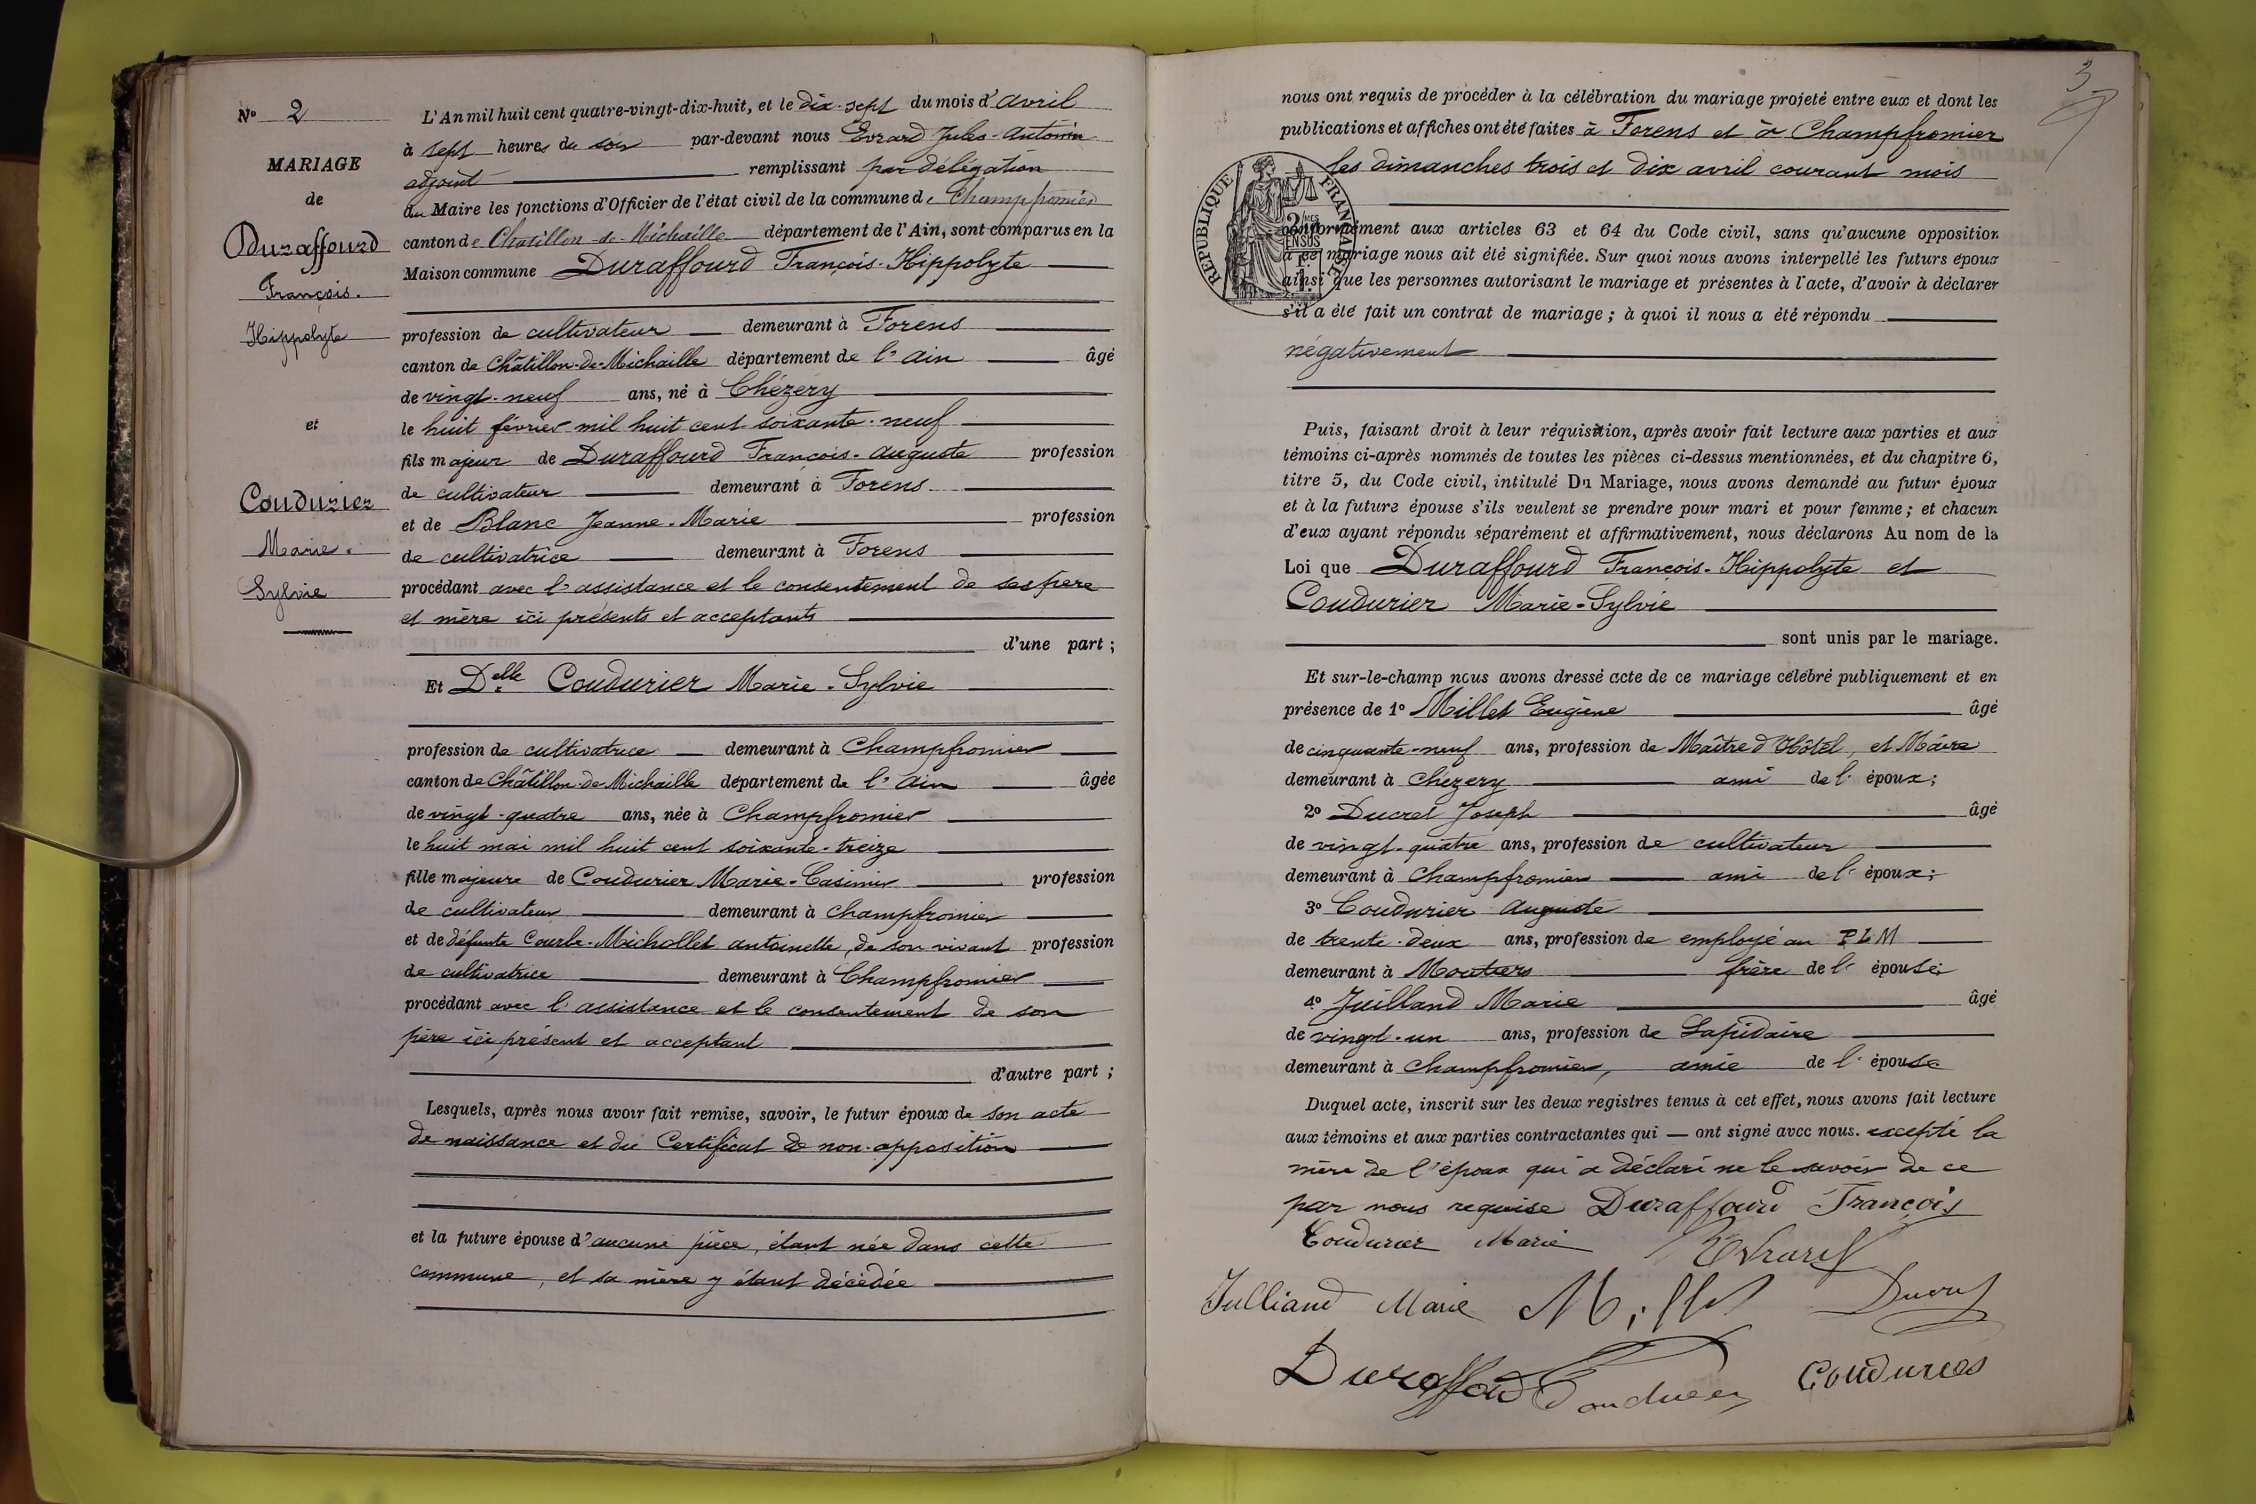 N° 2
MARIAGE
de
Duraffourd
François.
Hippolyte
et
Coudurier
Marie.
Sylvie
L'An mil huit cent quatre-vingt-dix-huit, et le dix-sept du mois d'avril
à sept heures du soir par-devant nous Evrard Jules-Antonin
adjoint remplissant par délégation
du Maire les fonctions d'Officier de l'état civil de la commune de Champfromier
canton de Chatillon-de-Michaille département de l'Ain, sont comparus en la
Maison commune Duraffourd François-Hippolyte
profession de cultivateur demeurant à Forens
canton de Châtillon-de-Michaille département de l'ain âgé
de vingt-neuf ans, né à Chézery
le huit février mil huit cent soixante-neuf
fils majeur de Duraffourd François-Auguste profession
de cultivateur demeurant à Forens
et de Blanc Jeanne-Marie profession
de cultivatrice demeurant à Forens
procédant avec l'assistance et le consentement de ses père
et mère ici présents et acceptants
d'une part ;
Et Delle Coudurier Marie-Sylvie
profession de cultivatrice demeurant à Champfromier
canton de Châtillon de Michaille département de l'Ain âgée
de vingt-quatre ans, née à Champfromier
le huit mai mil huit cent soixante-treize
fille majeure de Coudurier Marie-Casimir profession
de cultivateur demeurant à champfromier
et de défunte Courbe-Michollet antoinette, de son vivant profession
de cultivatrice demeurant à Champfromier
procédant avec l'assistance et le consentement de son
père ici présent et acceptant
d'autre part ;
Lesquels, après nous avoir fait remise, savoir, le futur époux de son acte
de naissance et du Certificat de non-opposition
et la future épouse d'aucune pièce, étant née dans cette
commune, et sa mère y étant décédée
3
nous ont requis de procéder à la célébration du mariage projeté entre eux et dont les
publications et affiches ont été faites à Forens et à Champfromier
les dimanches trois et dix avril courant mois
RÉPUBLIQUE FRANÇAISE
conformément aux articles 63 et 64 du Code civil, sans qu'aucune opposition
à ce mariage nous ait été signifiée. Sur quoi nous avons interpellé les futurs époux
ainsi que les personnes autorisant le mariage et présentes à l'acte, d'avoir à déclarer
s'il a été fait un contrat de mariage ; à quoi il nous a été répondu
négativement
Puis, faisant droit à leur réquisition, après avoir fait lecture aux parties et aux
témoins ci-après nommés de toutes les pièces ci-dessus mentionnées, et du chapitre 6,
titre 5, du Code civil, intitulé Du Mariage, nous avons demandé au futur époux
et à la future épouse s'ils veulent se prendre pour mari et pour femme ; et chacun
d'eux ayant répondu séparément et affirmativement, nous déclarons Au nom de la
Loi que Duraffourd François-Hippolyte et
Coudurier Marie-Sylvie
sont unis par le mariage.
Et sur-le-champ nous avons dressé acte de ce mariage célébré publiquement et en
présence de 1° Millet Eugène âgé
de cinquante-neuf ans, profession de Maître d'Hôtel, et Maire
demeurant à Chézery ami de l'époux ;
2° Ducret Joseph âgé
de vingt-quatre ans, profession de cultivateur
demeurant à Champfromier ami de l'époux ;
3° Coudurier Auguste
de trente-deux ans, profession de employé au PLM
demeurant à Moutiers frère de l'épouse ;
4° Juilland Marie âgé
de vingt-un ans, profession de Lapidaire
demeurant à Champfromier, amie de l'épouse
Duquel acte, inscrit sur les deux registres tenus à cet effet, nous avons fait lecture
aux témoins et aux parties contractantes qui — ont signé avec nous. excepté la
mère de l'époux qui a déclaré ne le savoir de ce
par nous requise Duraffourd François
Coudurier Marie Evrard
Julliand Marie Millet Ducret
Duraffourd Coudurier Coudurier